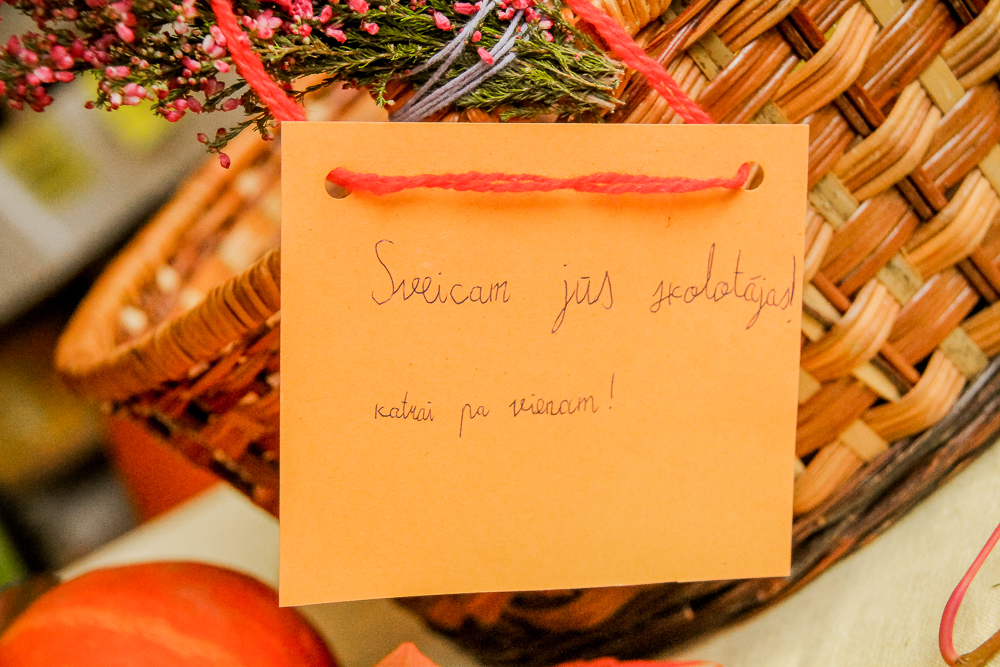 Sveicam jūs skolotājas!
katrai pa vienam!